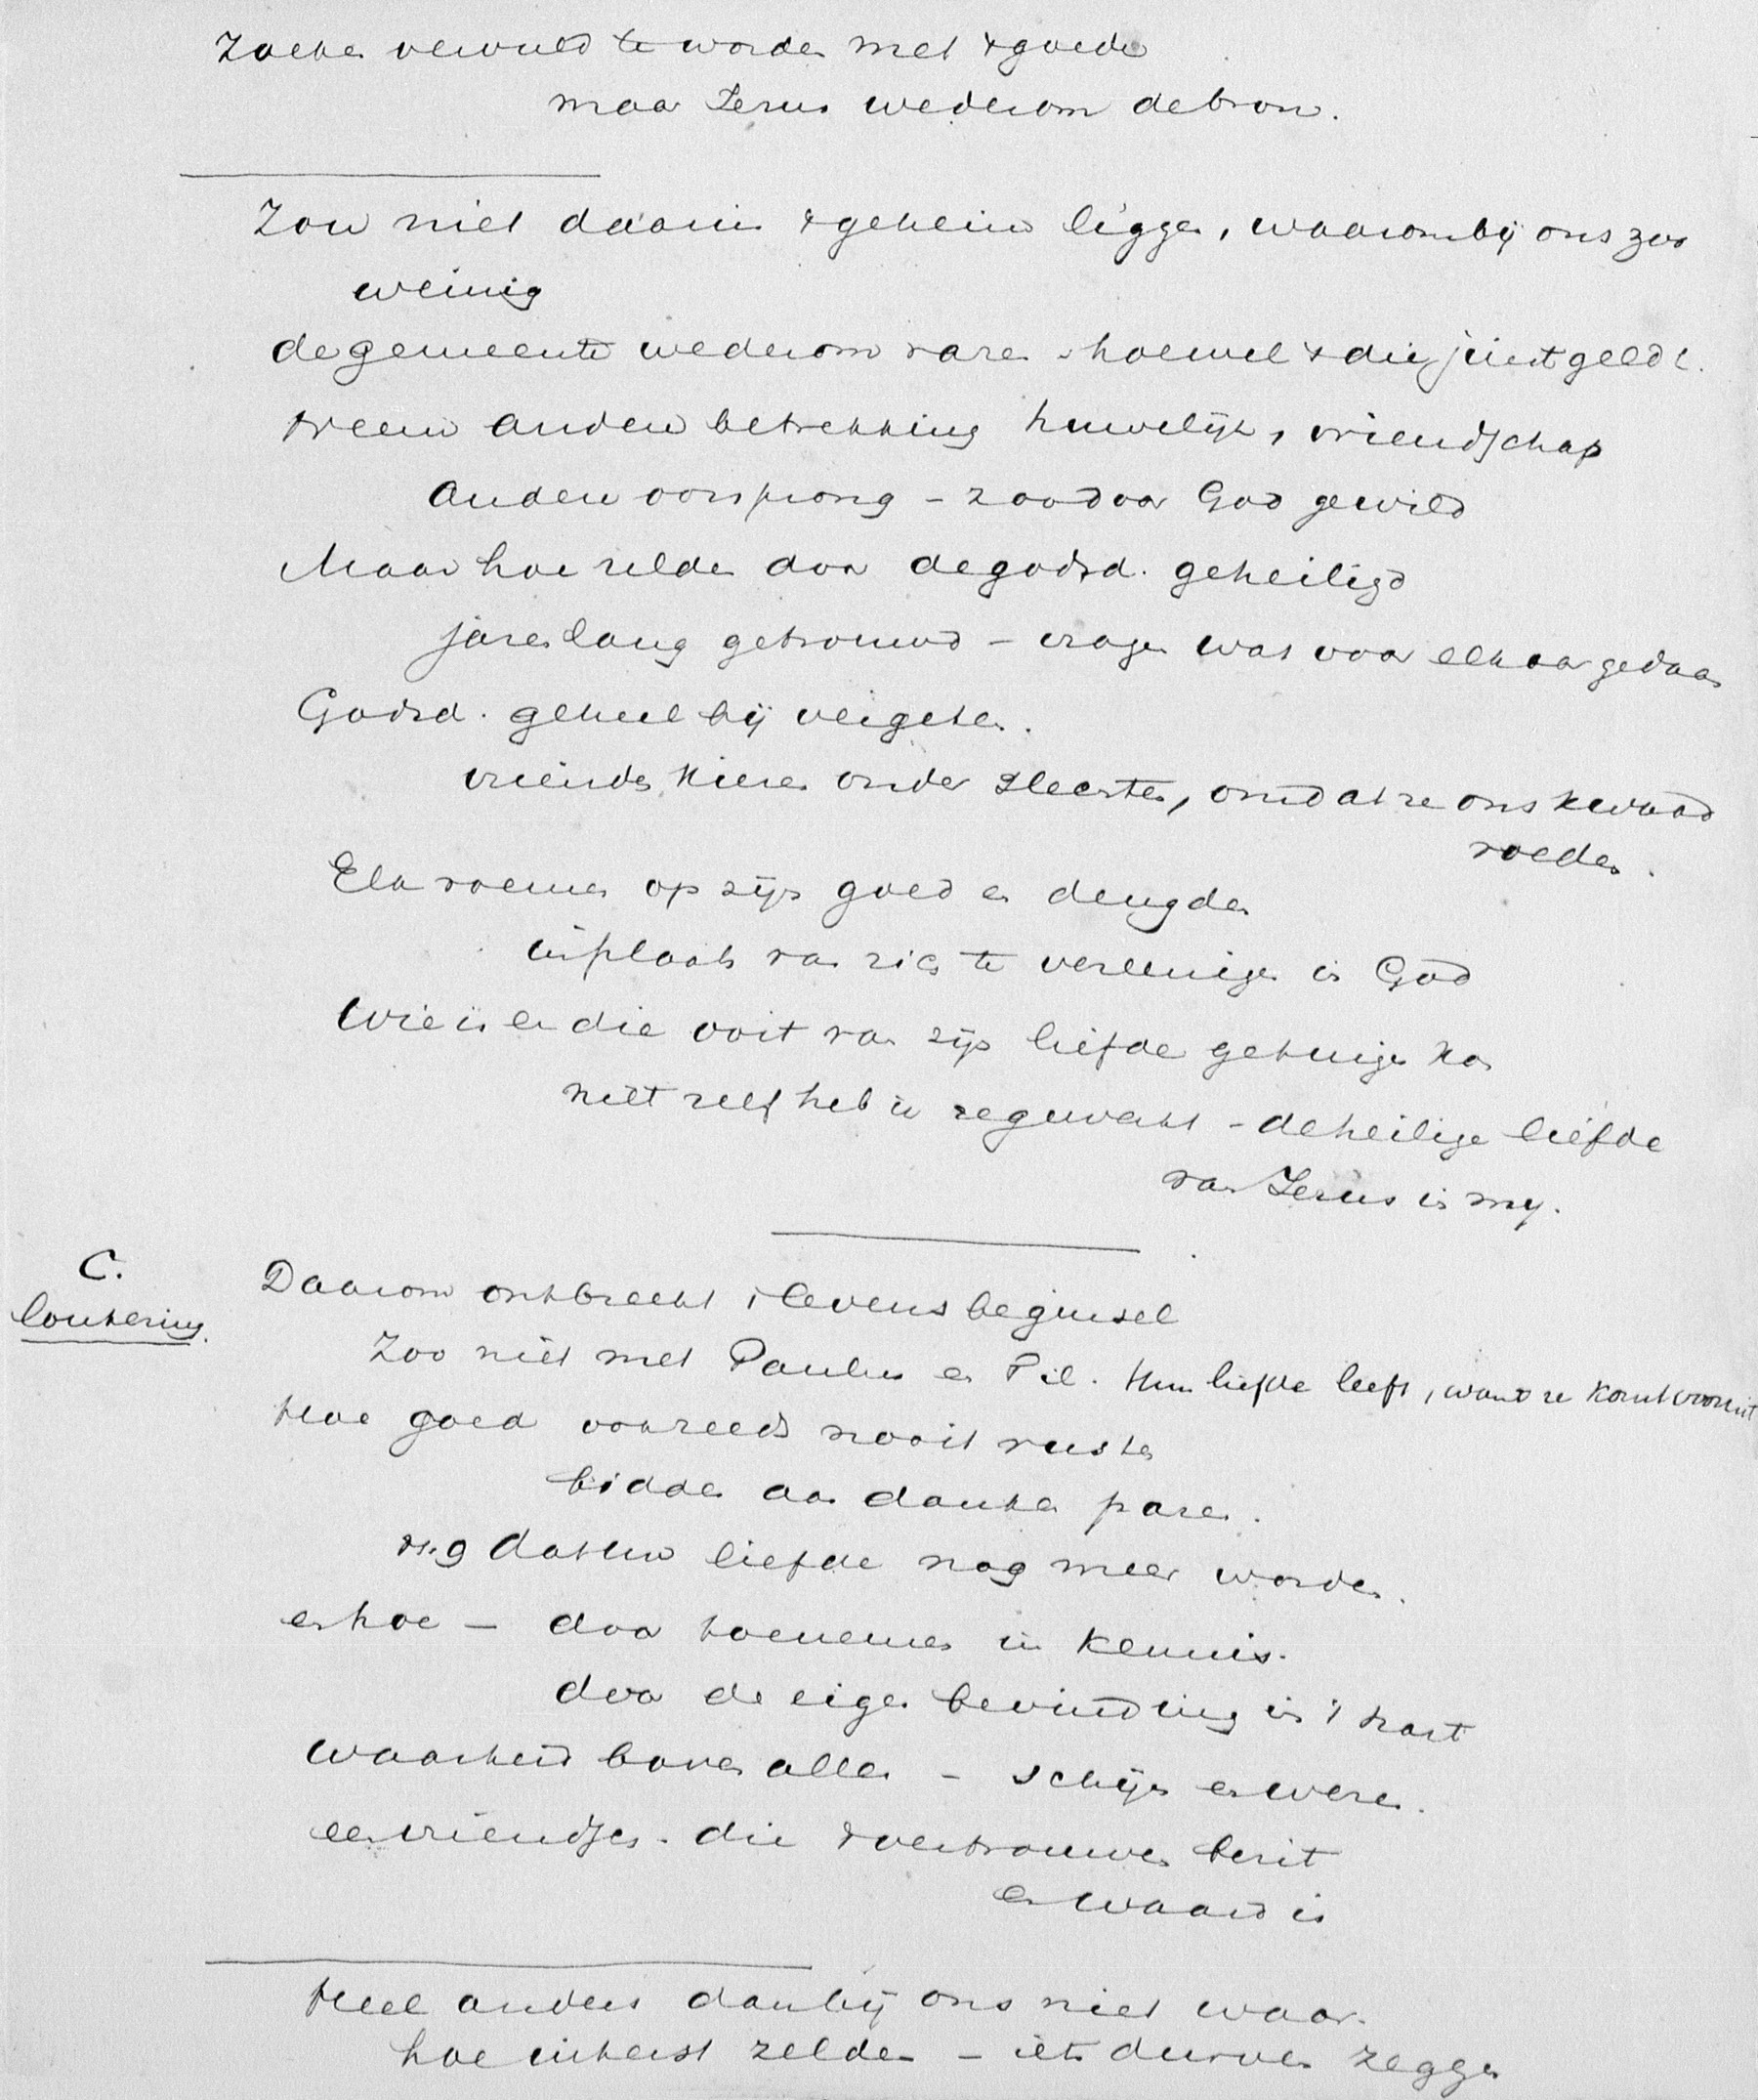 Zoeken vervuld te worden met 't goede
maar Jezus wederom de bron.
Zou niet daarin 't geheim liggen, waarom bij ons zoo
weinig
de gemeente wederom hoewel 't die juist geldt.
anderen betrekking huwelijk, vriendschap
anderen oorsprong - zoo door God gewild
Maar hoe zelden door de godsd. geheiligd
jarenlang getrouwd - vragen wat voor elkaar gedaan
Godsd. geheel bij vergeten.
vrienden kiezen onder slechten, omdat ze ons kwaad
voeden.
Elk roemen op zijn goed en deugden
in plaats van zich te vereenigen in God
Wie is er die ooit van zijn liefde getuigen kan
niet zelf heb ik ze gewekt - de heilige liefde
van Jezus in mij.
C.
loutering.
Daarom ontbreekt 't levensbeginsel
Zoo niet met Paulus en Fil. Hun liefde leeft, want ze komt vooruit
Hoe goed ook reeds nooit rusten
bidden aan danken paren.
vs. 9 dat uw liefde nog meer worde.
en hoe - door toenemen in kennis.
door de eigen bevinding in 't hart
waarheid boven alles - schijn en wezen.
een vriendsch. die 't vertrouwen bezit
en waard is
Heel anders dan bij ons niet waar.
hoe uiterst zelden - iets durven zeggen